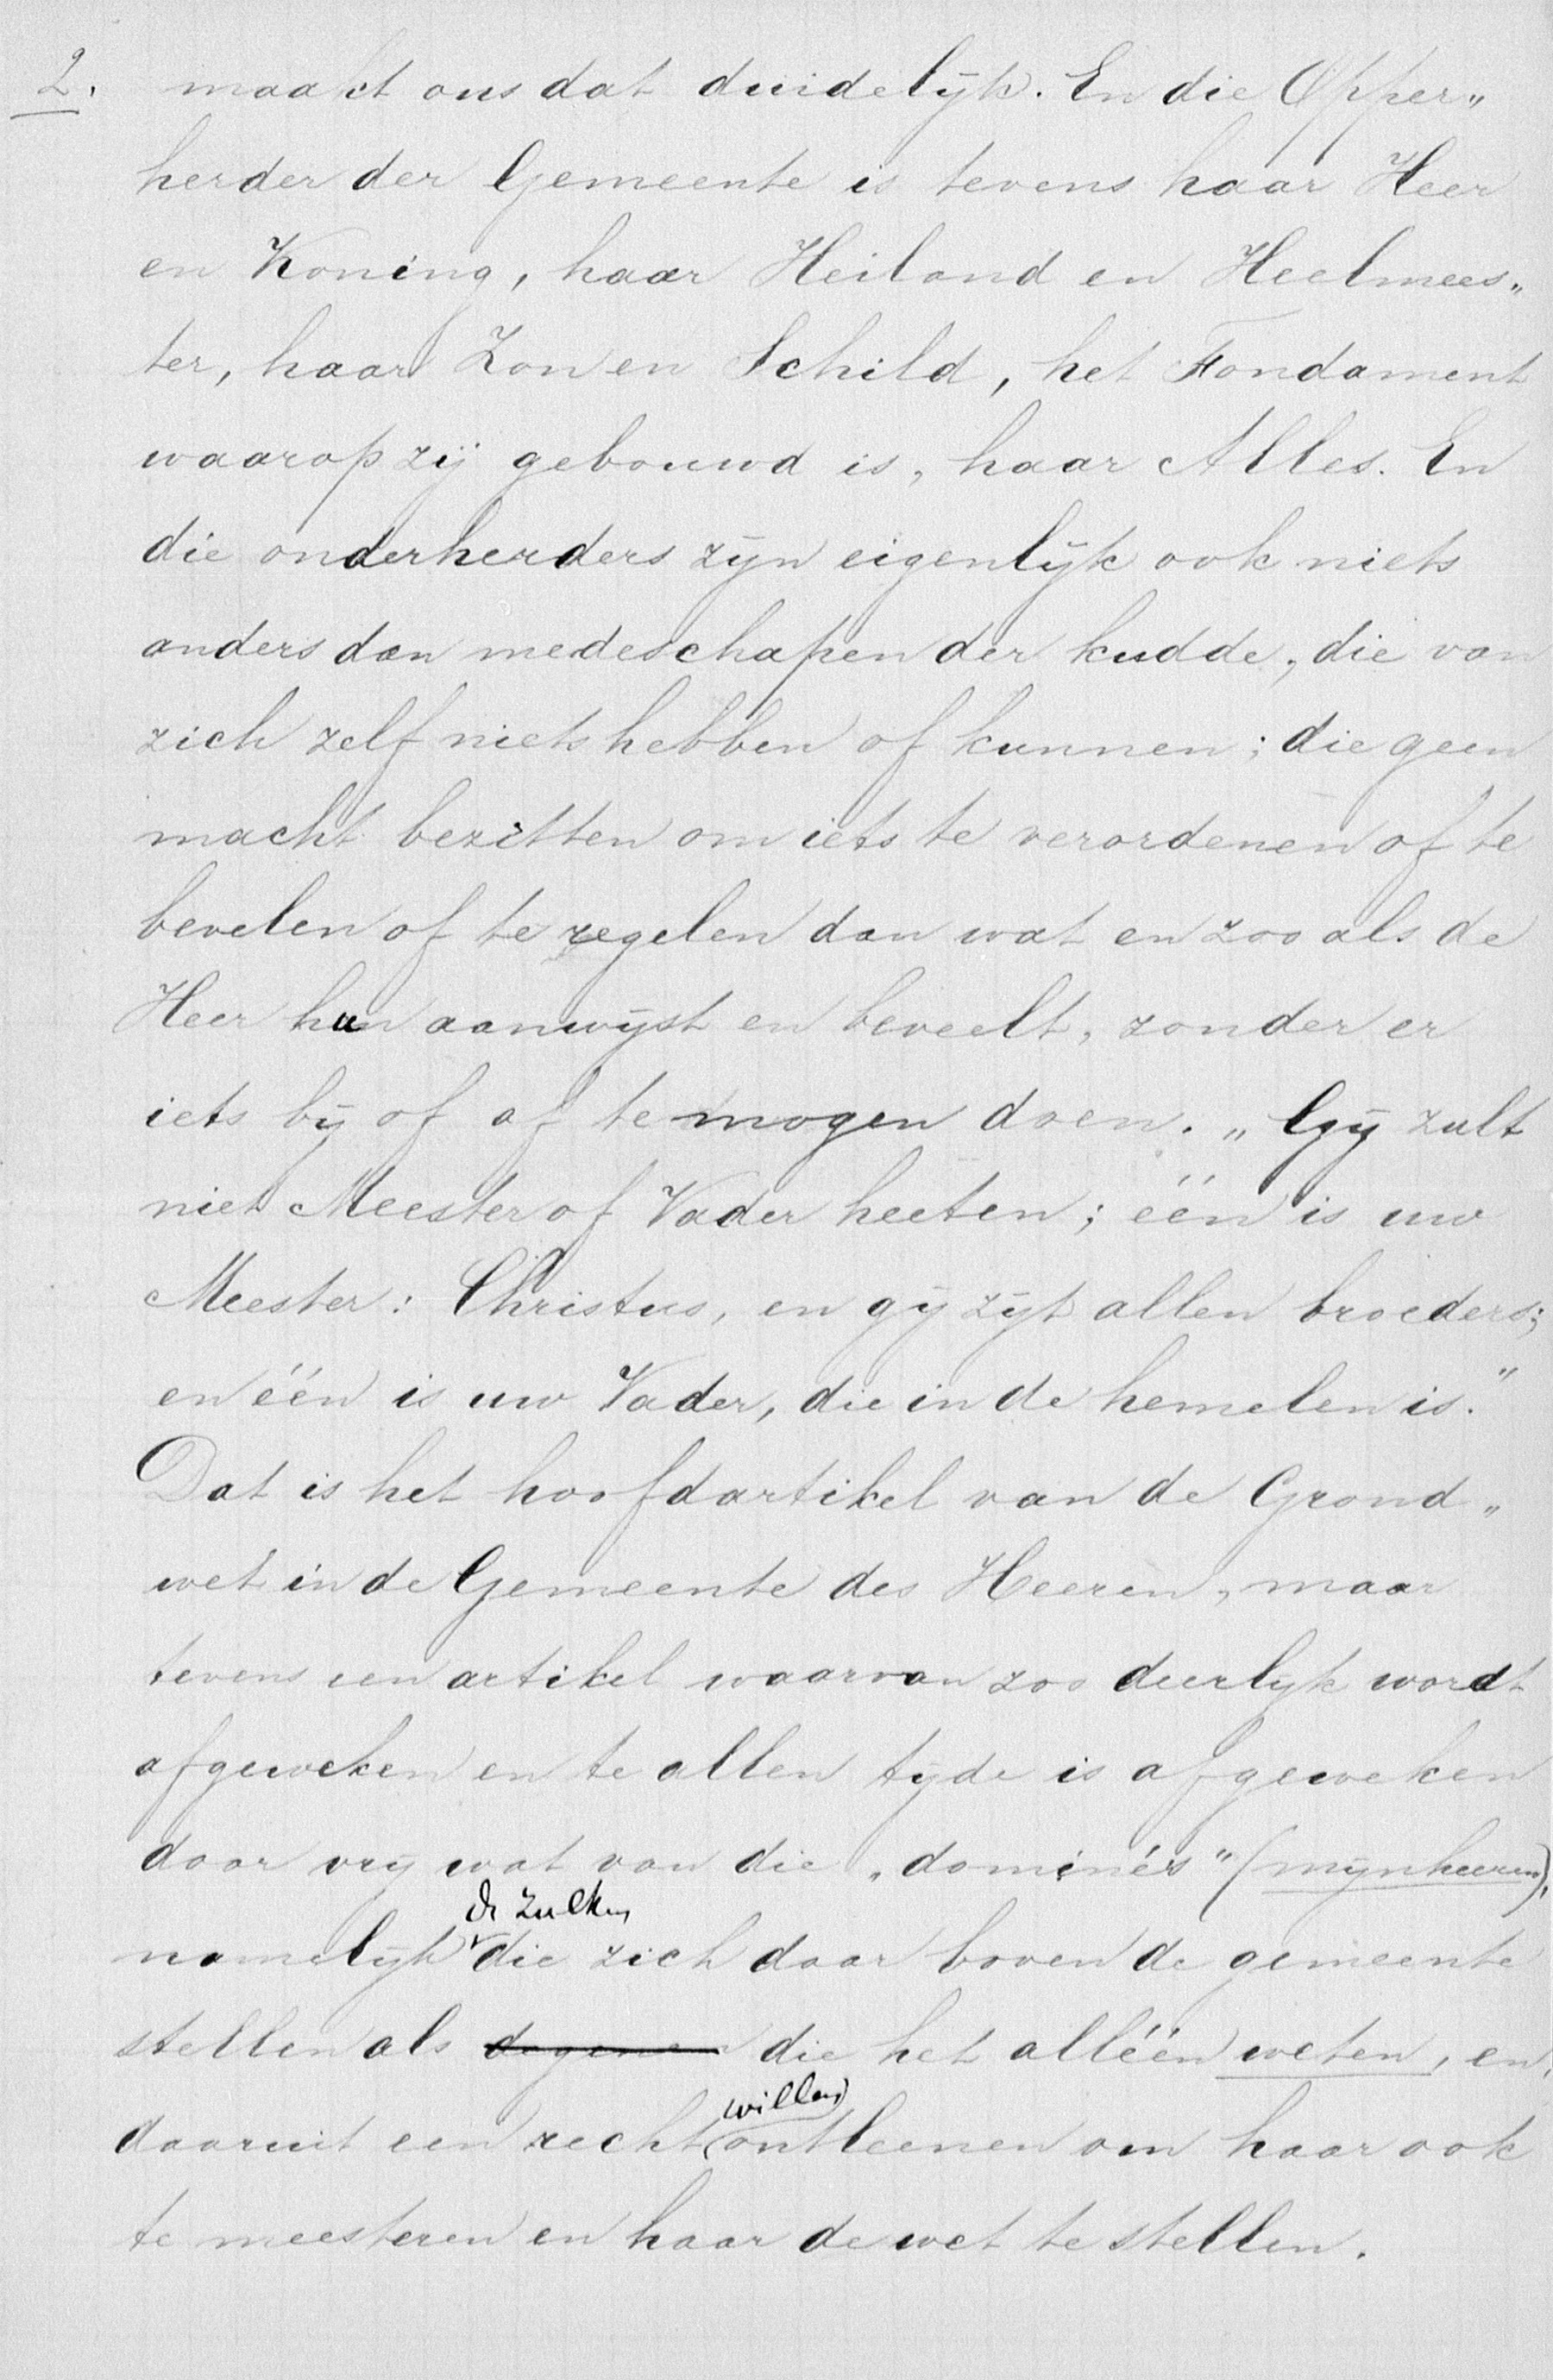 2. maakt ons dat duidelijk. En die Opper„
herder der Gemeente is tevens haar Heer
en Koning, haar Heiland en Heelmees„
ter, haar Zon en Schild, het Fondament
waarop zij gebouwd is, haar Alles. En
die onderherders zijn eigenlijk ook niets
anders dan medeschapen der kudde, die van
zich zelf niets hebben of kunnen; die geen
macht bezitten om iets te verordenen of te
bevelen of te regelen dan wat en zoo als de
Heer hun aanwijst en beveelt, zonder er
iets bij of af te mogen doen. „Gij zult
niet Meester of Vader heeten; één is uw
Meester: Christus, en gij zijt allen broeders;
en één is uw Vader, die in de hemelen is."
Dat is het hoofdartikel van de Grond„
wet in de Gemeente des Heeren, maar
tevens een artikel waarvan zoo deerlijk wordt
afgeweken en te allen tijde is afgeweken
door vrij wat van die „dominés" (mijnheeren),
de zulken
namelijk die zich daar boven de gemeente
stellen als degenen die het alléén weten, en
willen
daaruit een recht ontleenen om haar ook
te meesteren en haar de wet te stellen.